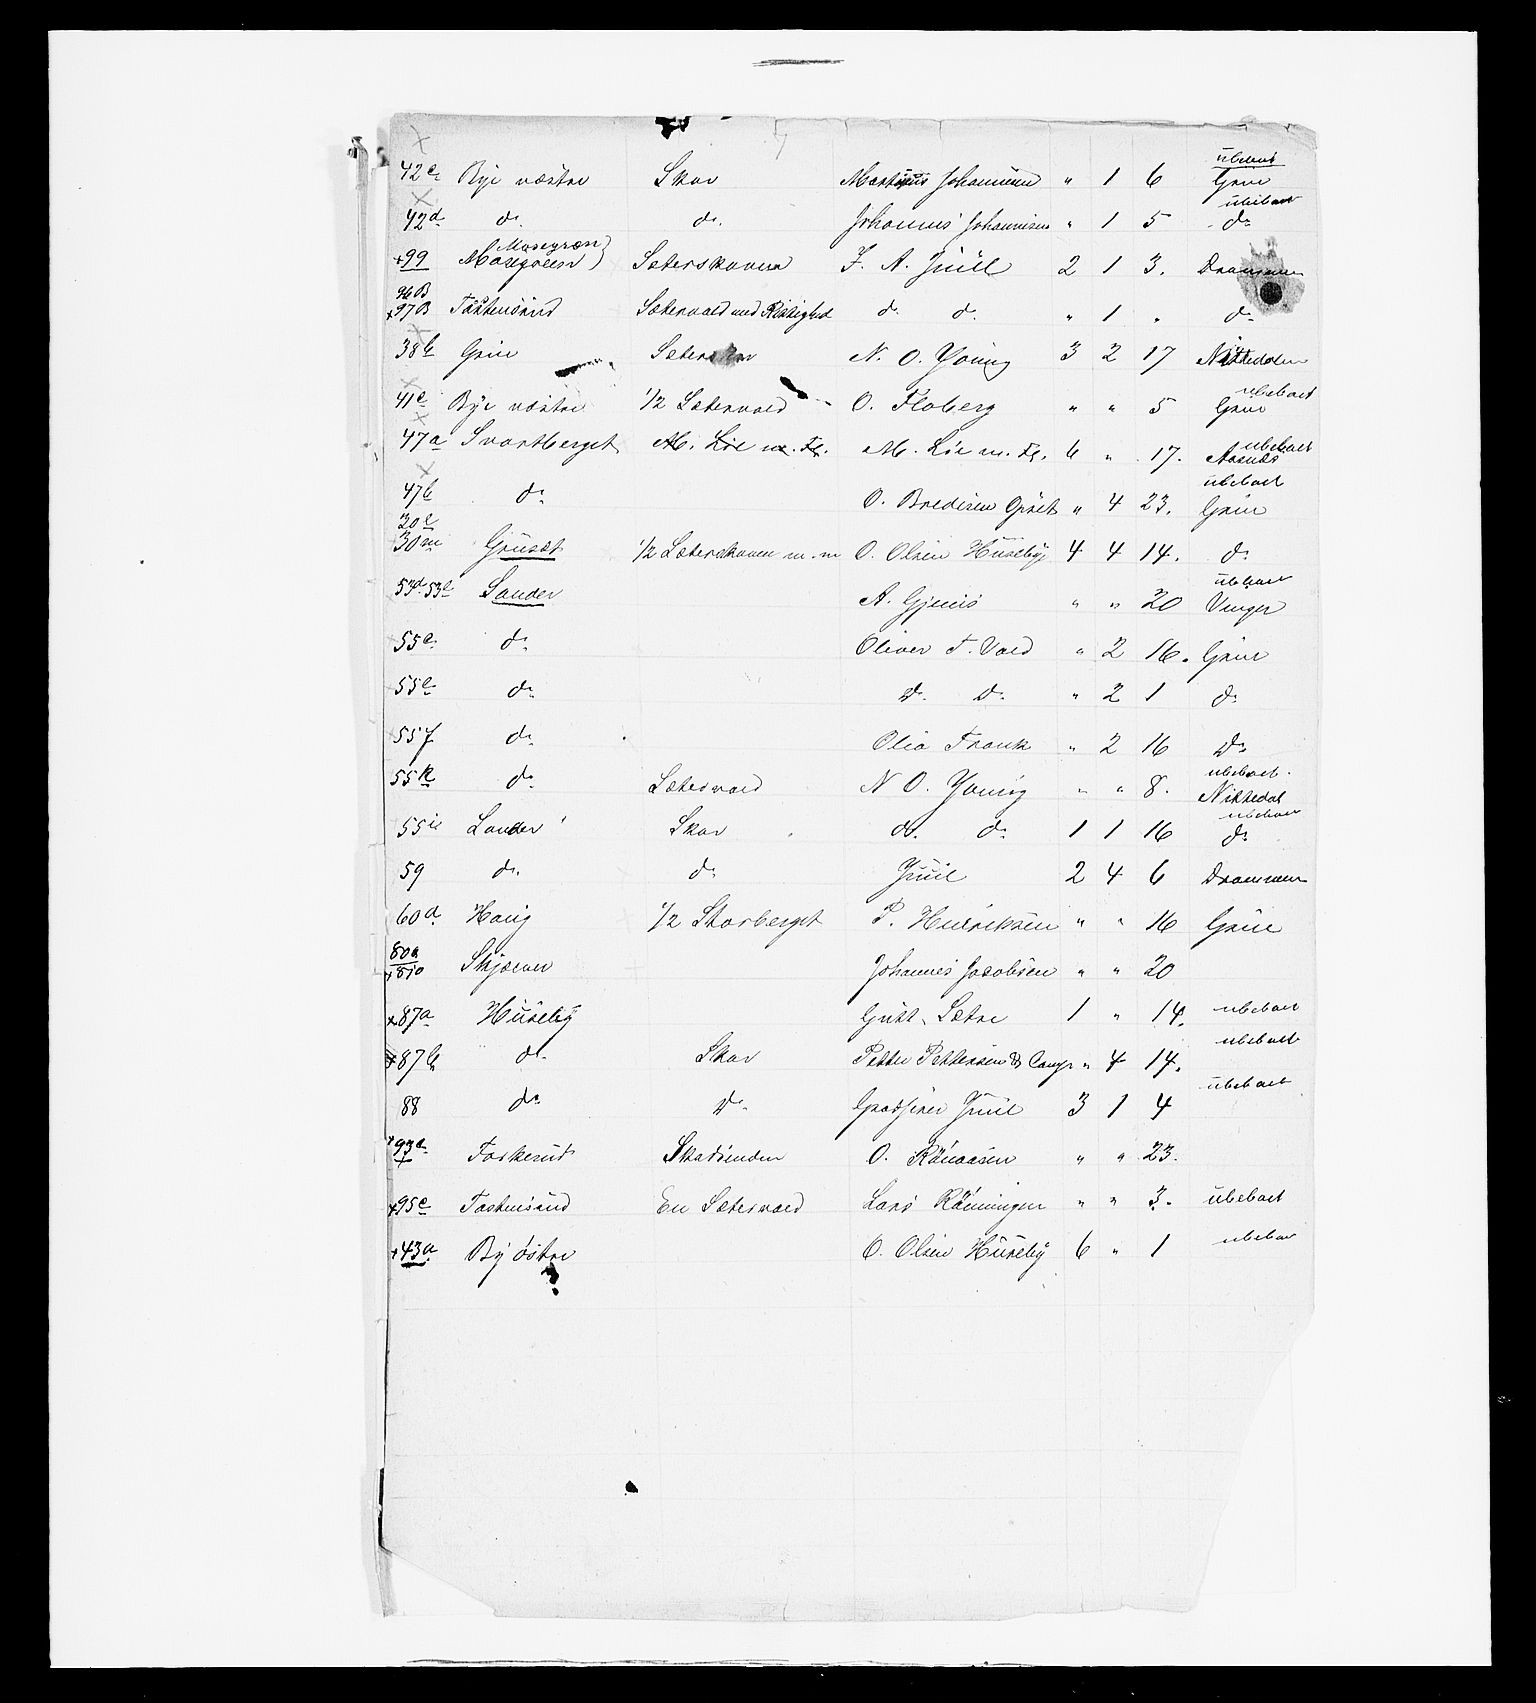 42c Bye vestre Skov Martinus Johannesen " 1 6 Ubeboet Grue
42d do do Johannes Johannesen " 1 5 Ubeboet do
+99 Mosegroen Mosegroen) Sæterskoven F. A. Juell 2 1 3. Drammen
96B
+97B Taskensrud Sætervold med Rettighed do do " 1 " do
38b Grue Sæterskov N. O. Young 3 2 17 Nittedalen
41e Bye vestre 1/2 Sætervold O. Floberg " " 5 ubeboet Grue
47a Svartberget M. Lie m. Fl. M. Lie m. Fl. 6 " 17. ubeboet Aasnes
47b do O. Bredesen Grset " 4 23. ubeboet Grue
30l
30m Gruset 1/2 Sæterskoven m. m O. Olsen Huseby 4 4 14. do
53d 53e Sander A. Gjems " " 20 ubeboet Vinger
55c do Oliver T. Vold " 2 16. Grue
55e do Do Do " 2 1 do
55f do Olia Frank " 2 16 Do
55k do Sætervold N O. Young " " 8. ubeboet. Nittedal
55i Sander Skov do do 1 1 16 ubeboet do
59 do do Juul 2 4 6 Drammen
60d Haug 1/2 Storberget P. Henriksen " " 16 Grue
80a
+810 Skjæren Johannes Jacobsen " " 20
+87a Huseby Gutt. Sætre 1 " 14. ubeboet
+87b do Skov Petter Pettersen & Comp " 4 14. ubeboet
88 do Do Grosserer Juul 3 1 4 ubeboet
+93d Taskerud O. Rönaasen " " 23.
+95c Taskensrud En Sætervold Lars Rönningen " " 3. ubeboet
+43a By östre O. Olsen Huseby 6 " 1 ubeboe